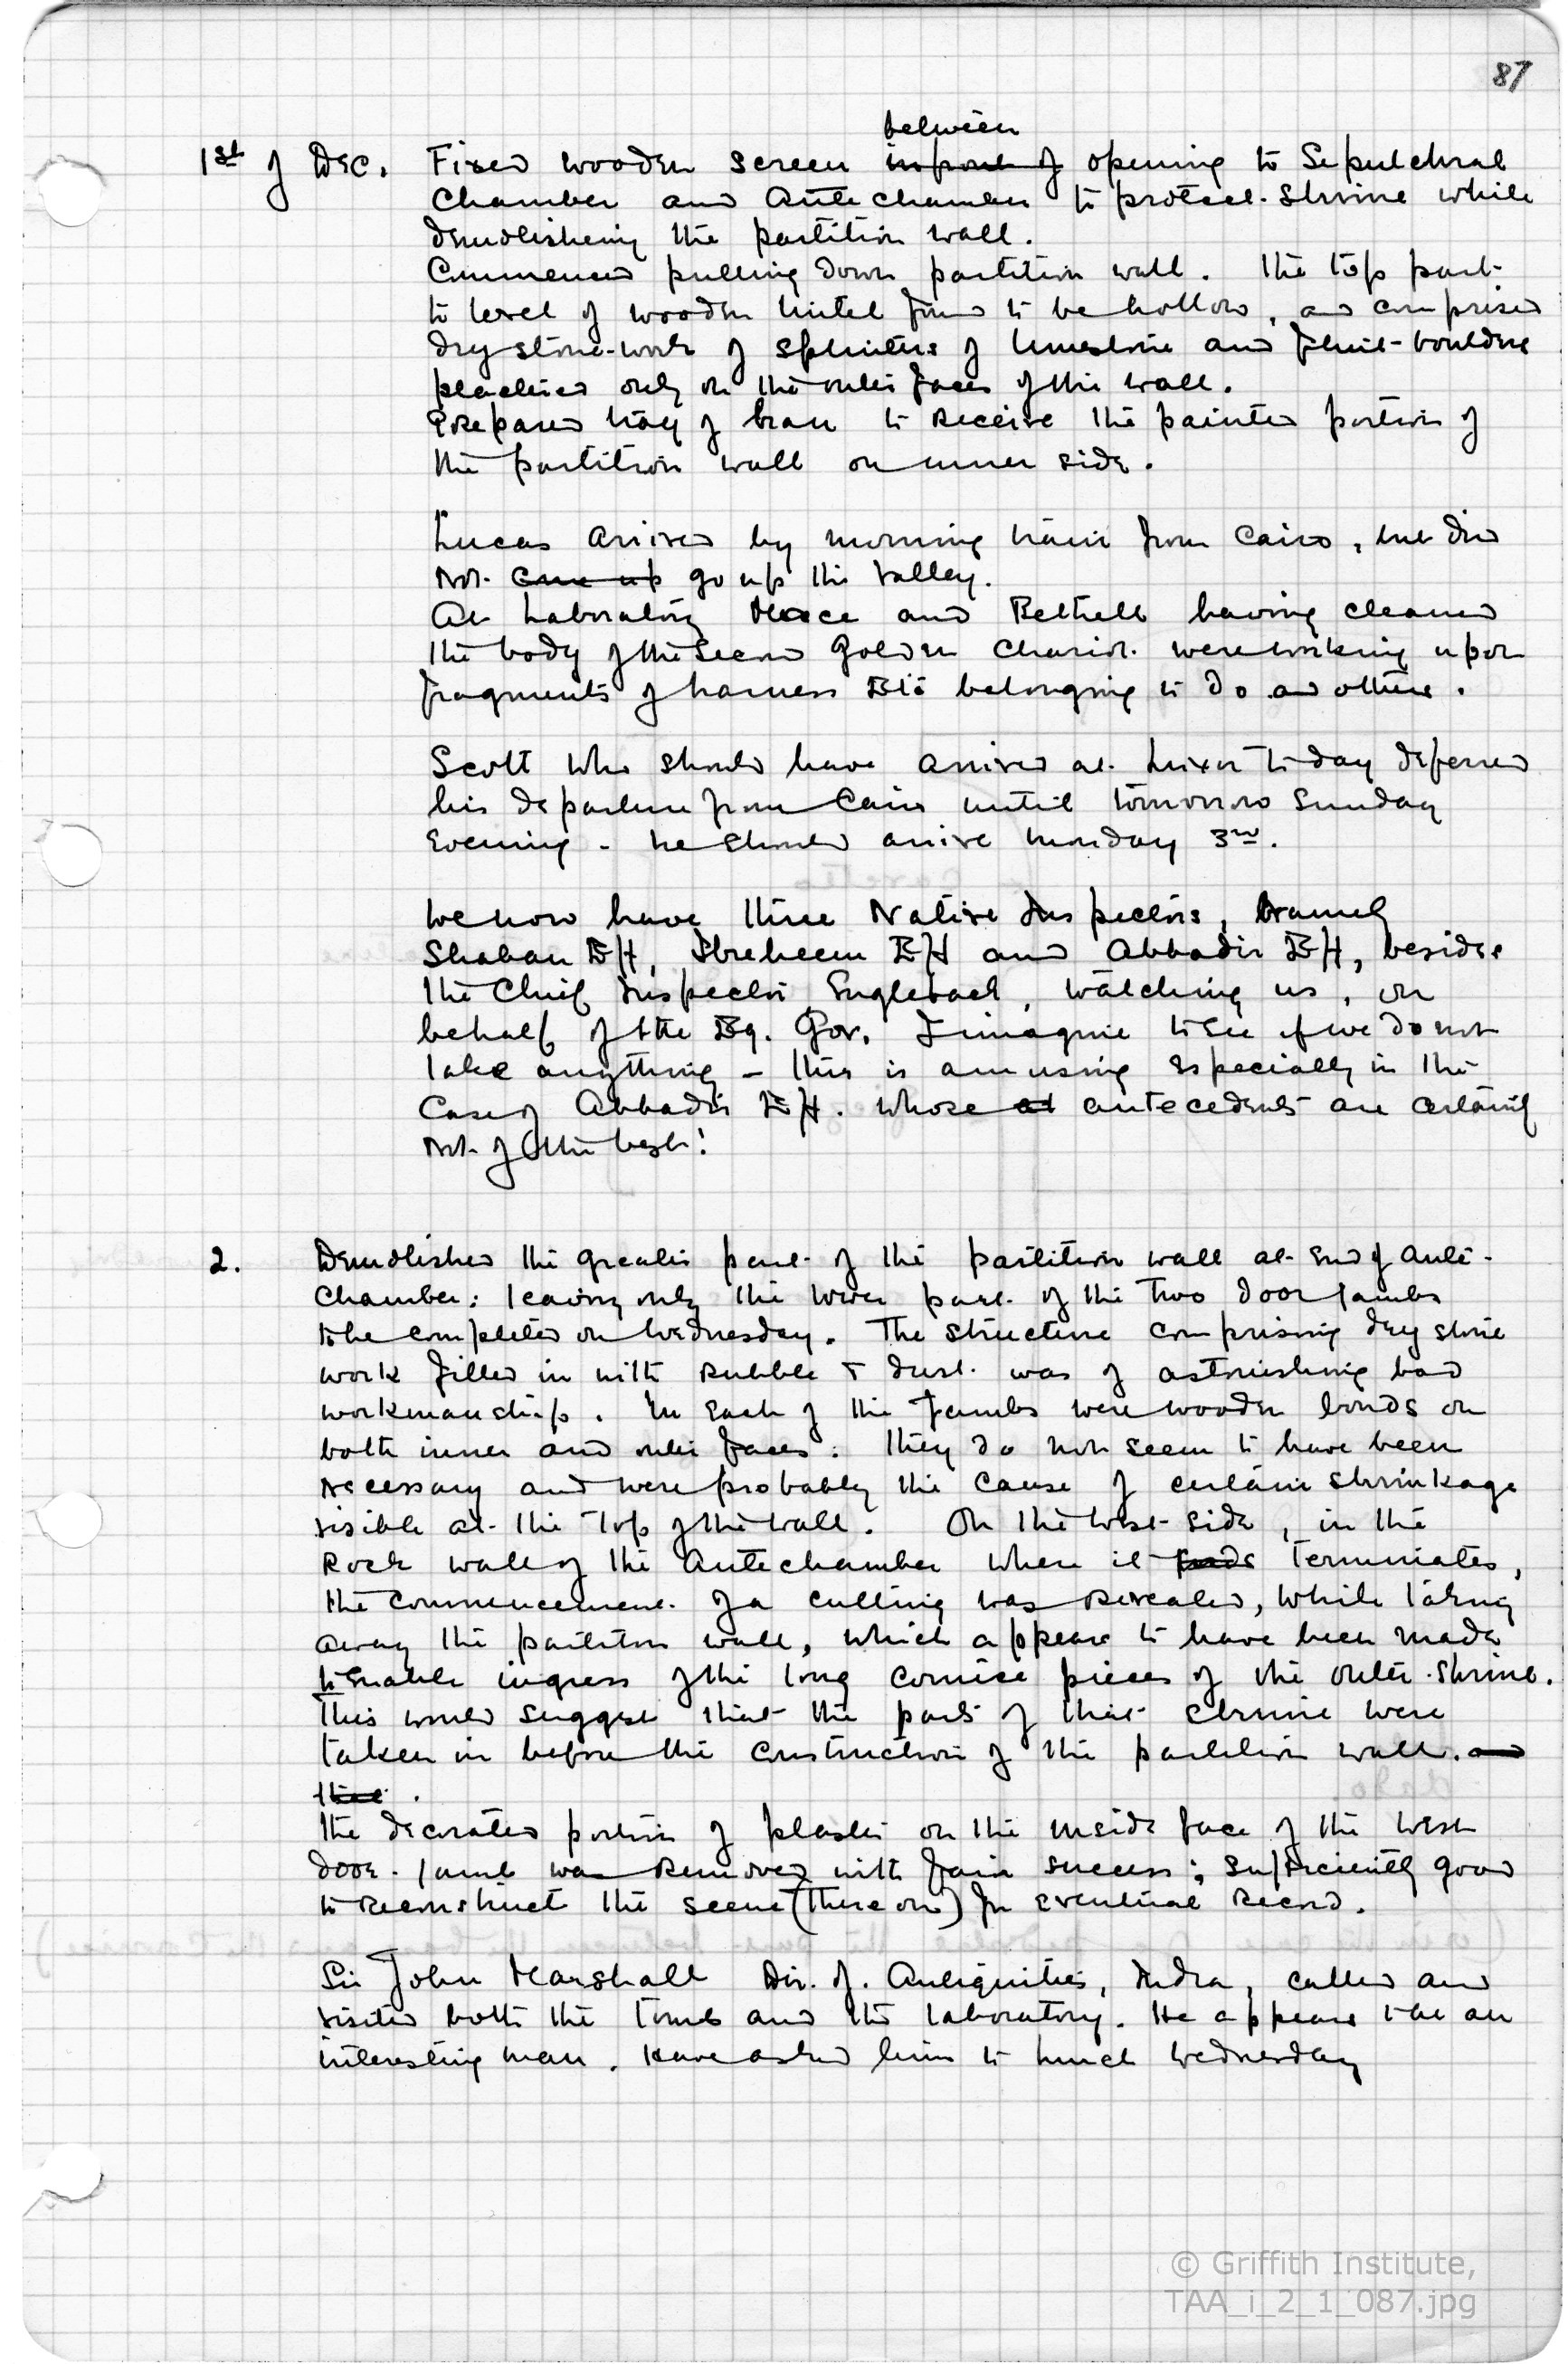 87
between
1st of Dec. Fixed wooden screen in front of opening to Sepulchral
Chamber and Antechamber to protect shrine while
demolishing the partition wall.
Commenced pulling down partition wall. The top part
to level of wooden lintel found to be hollow, and comprised
dry stone-work of splinters of limestone and flint-boulders
plastered only on the outer faces of the wall.
Prepared tray of bran to receive the painted portion of
the partition wall on inner side.
Lucas arrived by morning train from Cairo, but did
not came up go up the valley.
At Laboratory Mace and Bethell having cleaned
the body of the second golden chariot were working upon
fragments of harness etc belonging to do and others.
Scott who should have arrived at Luxor to day deferred
his departure from Cairo until tomorrow Sunday
evening - he should arrive Monday 3rd.
We now have three Native Inspectors, namely
Shaban Eff, Ibreheem Eff and Abbadir Eff, besides
the Chief Inspector Engleback, watching us, on
behalf of the Eg. Gov. I imagine to see if we do not
take anything - this is amusing especially in the
case of Abbadir Eff. whose antecedents are certainly
not of the best!
2. Demolished the greater part of the partition wall at end of Ante-
chamber: leaving only the lower part of the two door jambs
to be completed on Wednesday. The structure comprising dry stone
work filled in with rubble & dust was of astonishing bad
workmanship. In each of the jambs were wooden bonds on
both inner and outer faces: they do not seem to have been
necessary and were probably the cause of certain shrinkage
visible at the top of the wall. On the west side, in the
rock wall of the Antechamber where it ends terminates,
the commencement of a cutting was revealed, while taking
away the partition wall, which appears to have been made
to enable ingress of the long cornice pieces of the outer shrine.
This would suggest that the parts of that shrine were
taken in before the construction of the partition wall. and
that.
The decorated portion of plaster on the inside face of the west
door-jamb was removed with fair success; sufficiently good
to reconstruct the scene (thereon) for eventual record.
Sir John Marshall Dir. of. Antiquities, India, called and
visited both the tomb and the laboratory. He appears to be an
interesting man. Have asked him to lunch Wednesday
© Griffith Institute,
TAA_i_2_1_087.jpg